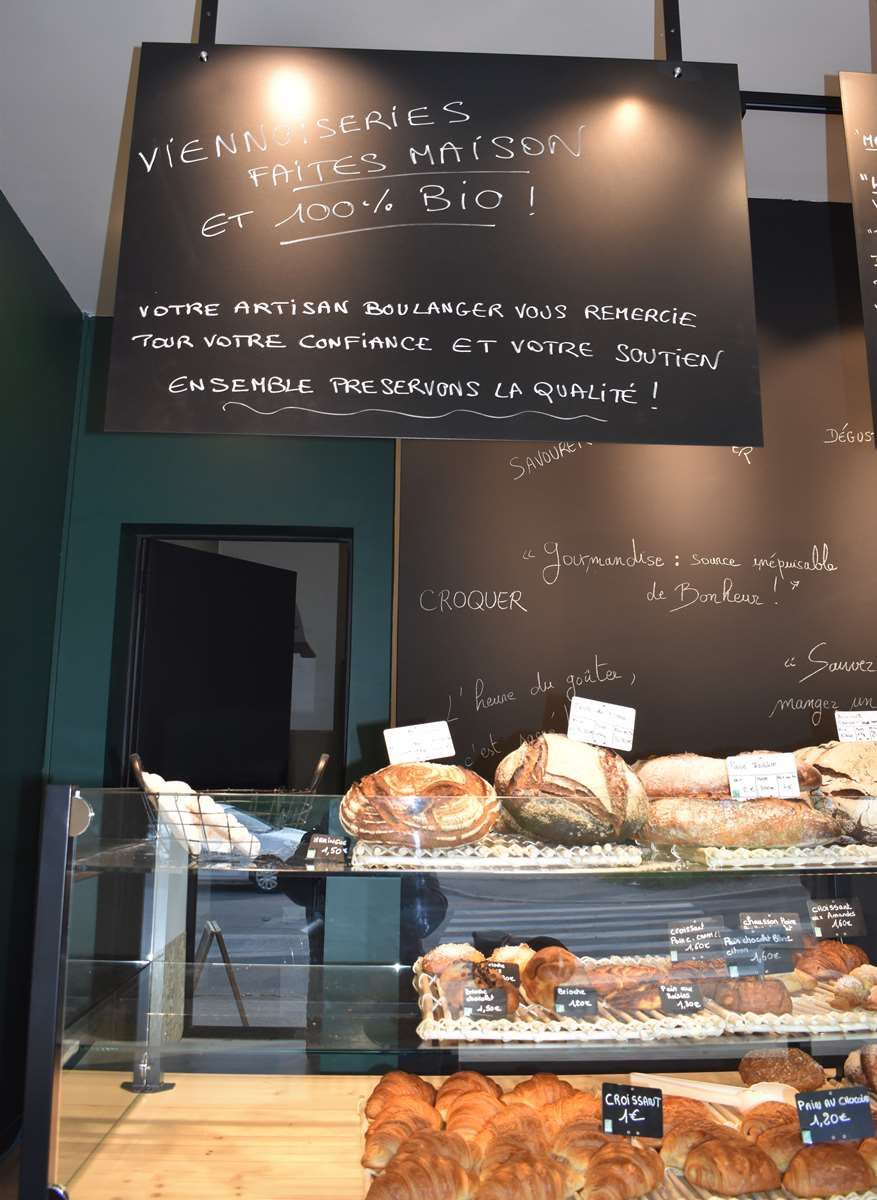 VIENNOISERIES
FAITES MAISON
ET 100% BIO !
VOTRE ARTISAN BOULANGER VOUS REMERCIE
POUR VOTRE CONFIANCE ET VOTRE SOUTIEN
ENSEMBLE PRESERVONS LA QUALITÉ !
SAVOURER
DÉGUS
"Gourmandise : source inépuisable
de Bonheur !"
CROQUER
"Sauvez
mangez un
L'heure du goûter,
c'est
MERINGUE
1,50€
CROISSANT
AUX AMANDES
1,60€
CROISSANT
1,60€
CHAUSSON POIRE
Pain chocolat Blanc
citron
1,60€
Brioche
chocolat
1,50€
Brioche
1,20€
Pain aux
Raisins
1,30€
CROISSANT
1€
PAIN AU CHOCOLAT
1,20€